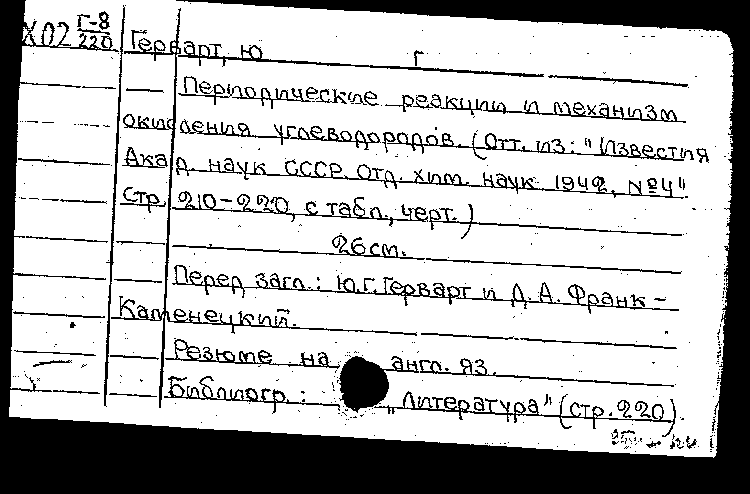 Х02 Г-8/220 Герварт, Ю Г
— Периодические реакции и механизм
окисления углеводородов. (Отт. из: "Известия
Акад. наук СССР. Отд. хим. наук 1942, №4"
стр. 210-220, с табл., черт.)
26 см.
Перед загл.: Ю.Г. Герварт и Д.А. Франк-
Каменецкий.
Резюме на англ. яз.
Библиогр.: "Литература" (стр. 220).